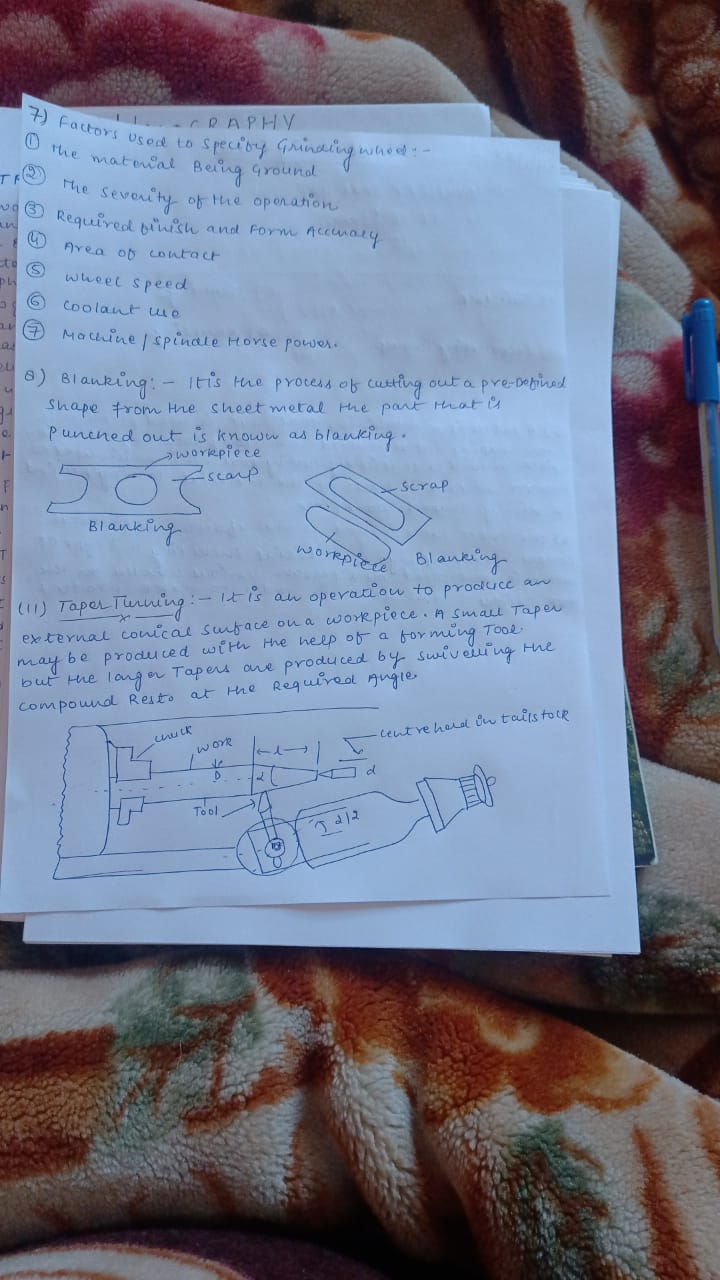 GRAPHY
7) Factors Used to Specify Grinding wheel:-
① The material Being Ground
② The Severity of the operation
③ Required finish and Form Accuracy
④ Area of contact
⑤ wheel speed
⑥ coolant use
⑦ Machine / spindle Horse power.
8) Blanking:- It is the process of cutting out a pre-Defined
shape from the sheet metal the part that is
punched out is known as blanking.
workpiece
scarp
Blanking
scrap
workpiece
Blanking
(11) Taper Turning:- It is an operation to produce an
external conical surface on a workpiece. A small Taper
may be produced with the help of a forming Tool
but the larger Tapers are produced by swivelling the
compound Rest at the Required Angle.
chuck
work
l
centre held in tailstock
D
α
d
Tool
α/2